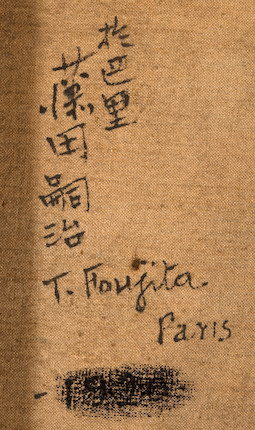 於巴里
藤田嗣治
T. Foujita.
Paris